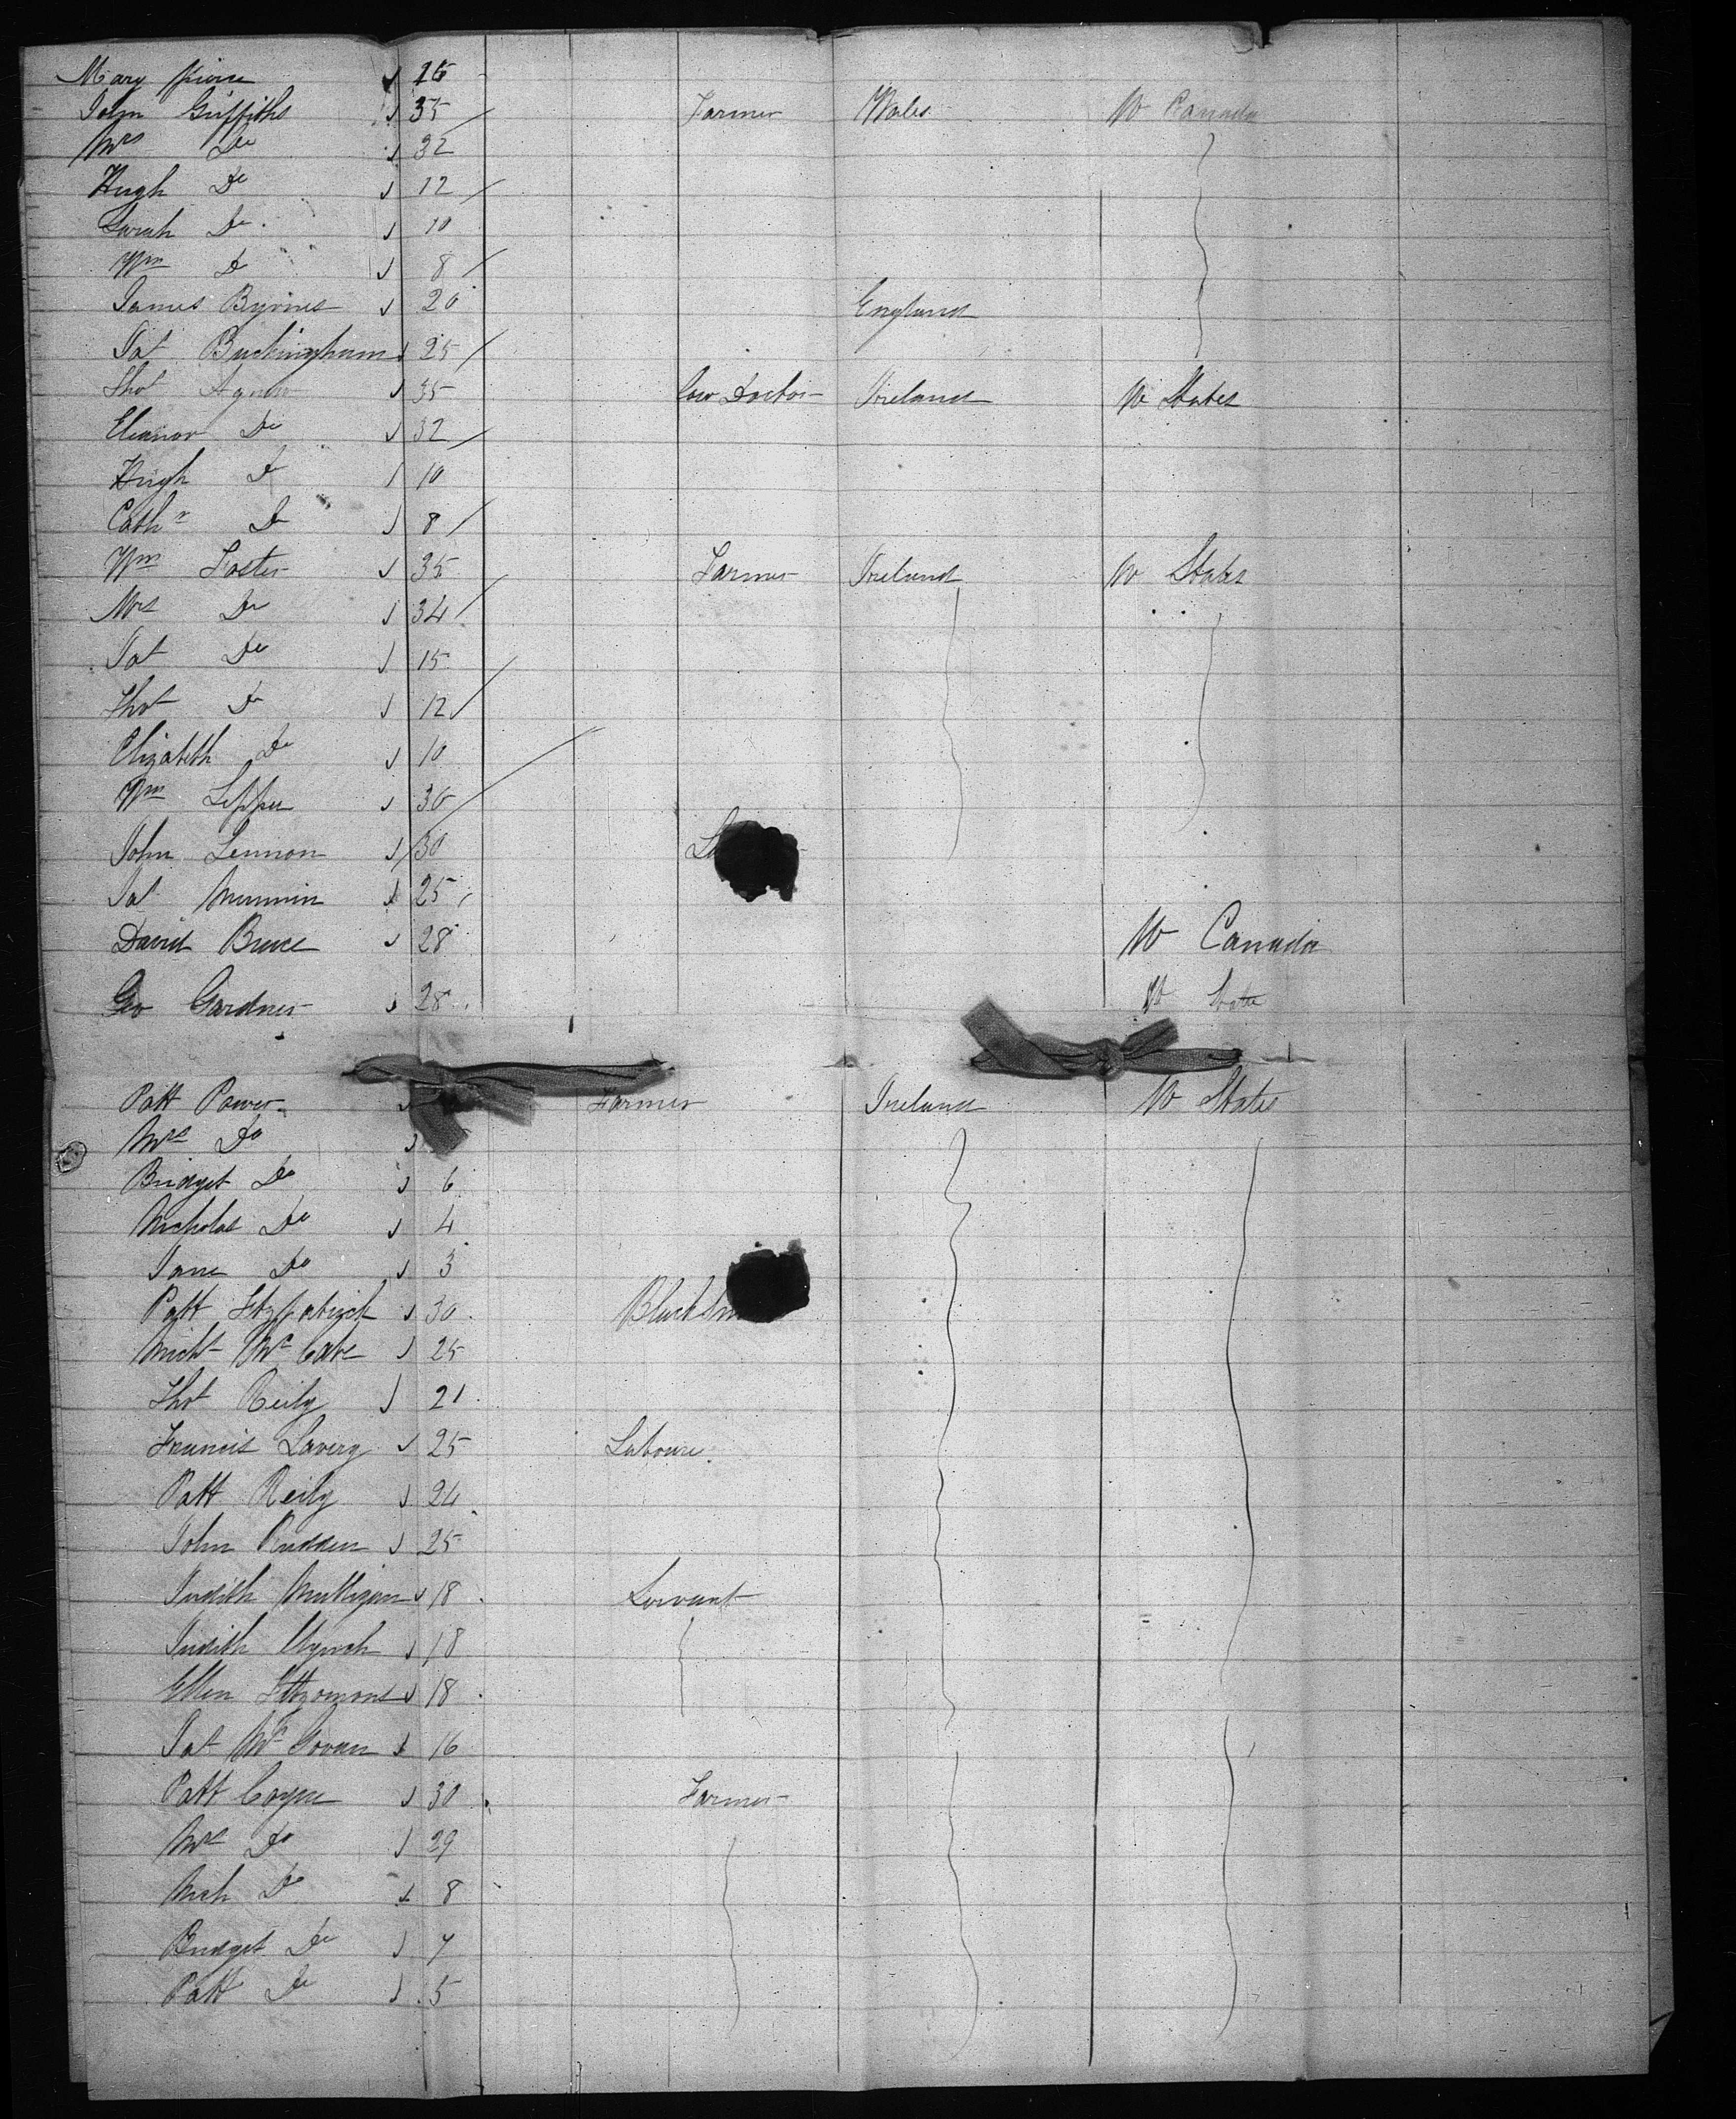 Mary Pierce 26
John Griffiths 35 Farmer Wales W Canada
Mrs Do 32
Hugh Do 12
Sarah Do 10
Wm Do 8
James Byrnes 20 England
Jas Buckingham 25
Thos Agnew 35 Cow Doctor Ireland W States
Eleanor Do 32
Hugh Do 10
Cathr Do 8
Wm Foster 35 Farmer Ireland W States
Mrs Do 34
Jas Do 15
Thos Do 12
Elizabeth Do 10
Wm 30
John Lennon 30
Jas 25
David Bruce 28 W Canada
Geo Gardner 28 W State
Patt Power Farmer Ireland W States
Mrs Do
Bridget Do 6
Nicholas Do 4
Jane Do 3
Patt Fitzpatrick 30
Michl McCabe 25
Thos Reily 21
Francis Lavery 25 Laboure
Patt Reily 24
John Rudden 25
Judith Mulligan 18 Servant
Judith 18
Ellen Fitzomons 18
Jas McGovan 16
Patt Coyne 30 Farmer
Mrs Do 29
Mich Do 8
Bridget Do 7
Patt Do 5